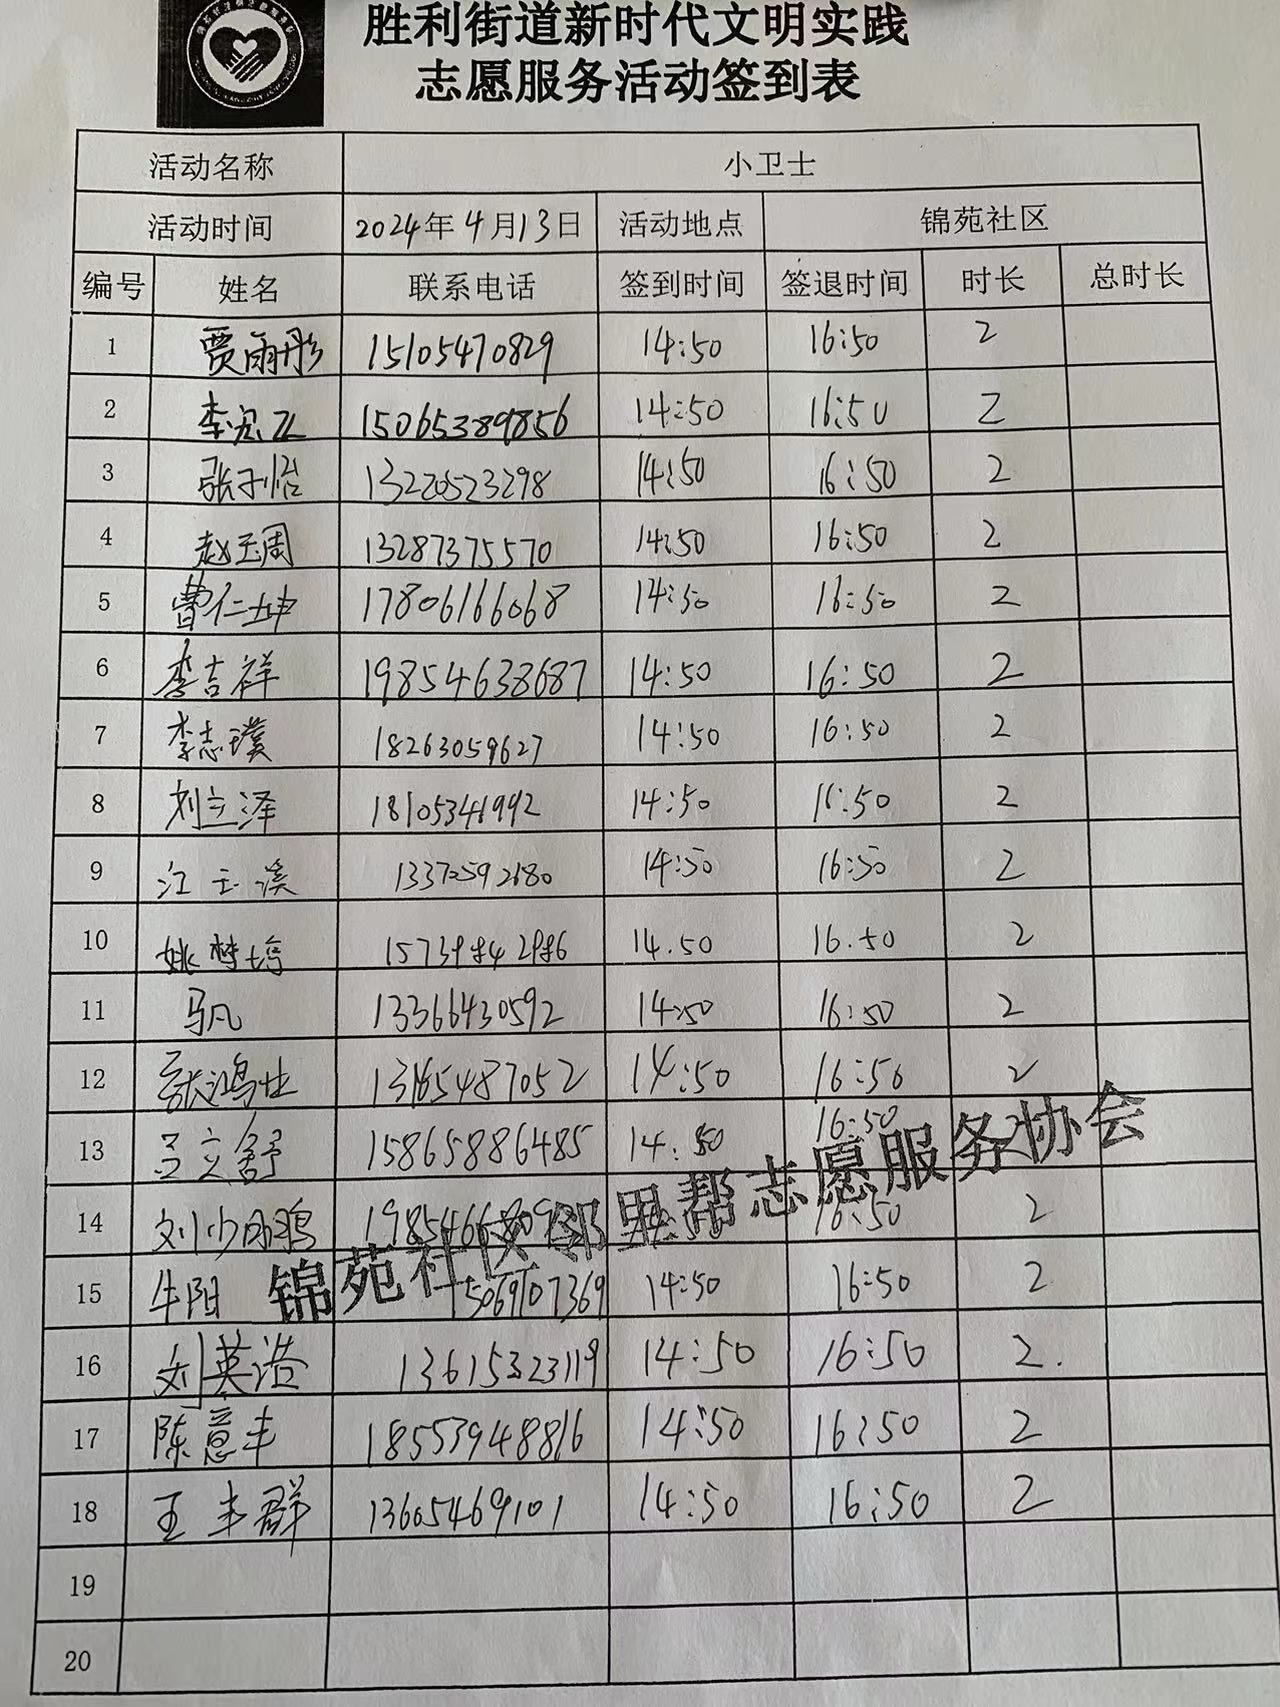 胜利街道新时代文明实践
志愿服务活动签到表
活动名称 小卫士
活动时间 2024年4月13日 活动地点 锦苑社区
编号 姓名 联系电话 签到时间 签退时间 时长 总时长
1 贾雨彤 15105470829 14:50 16:50 2
2 李宏 15065389856 14:50 16:50 2
3 张子怡 13220523298 14:50 16:50 2
4 赵玉周 13287375570 14:50 16:50 2
5 曹仁坤 17806166068 14:50 16:50 2
6 李吉祥 19854638687 14:50 16:50 2
7 李志璞 18263059627 14:50 16:50 2
8 刘立泽 14:50 16:50 2
9 江玉溪 14:50 16:50 2
10 姚梦婷 14.50 16.50 2
11 马凡 13366430592 14:50 16:50 2
12 张鸿 14:50 16:50 2
13 立舒 15865886485 14:50 16:50
14 刘少 16:50 2
15 牛阳 15069107369 14:50 16:50 2
锦苑社区邻里帮志愿服务协会
16 刘英浩 13615323119 14:50 16:50 2.
17 陈意丰 18553948816 14:50 16:50 2
18 王丰群 13605469101 14:50 16:50 2
19
20